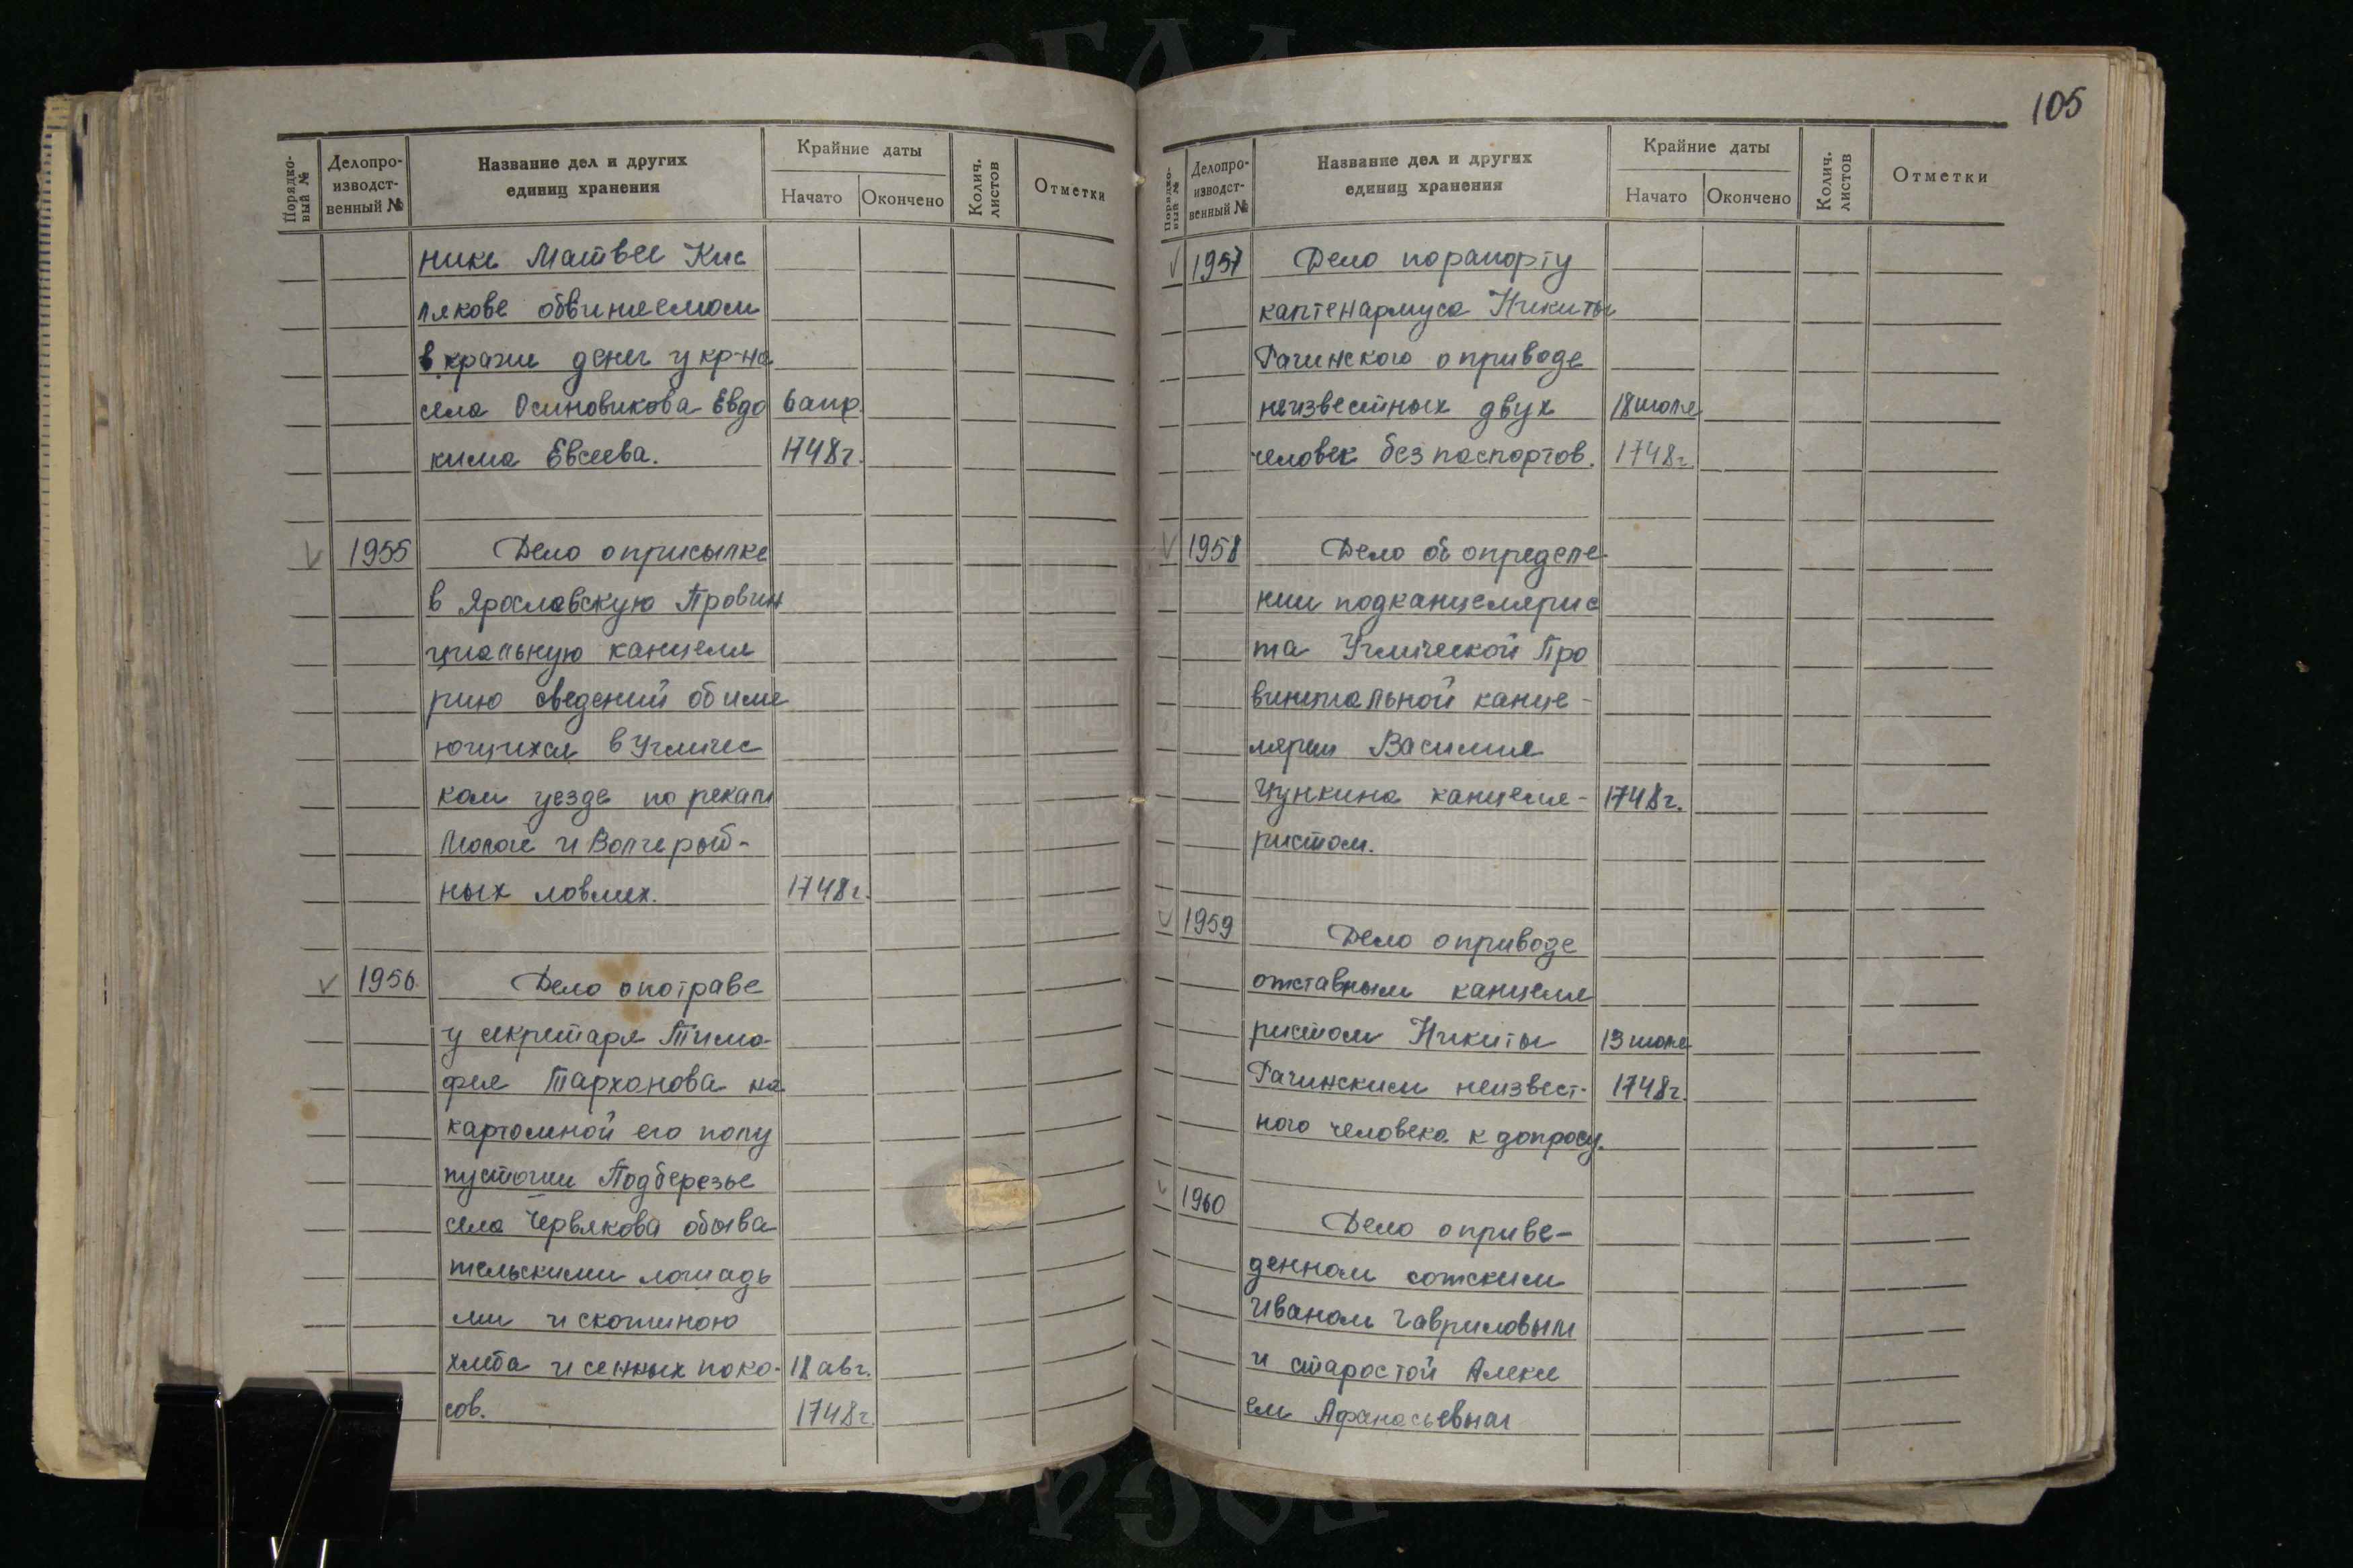 105
Порядко-
вый №
Делопро-
изводст-
венный №
Название дел и других
единиц хранения
Крайние даты
Начато
Окончено
Колич.
листов
Отметки
нике Матвее Кис
лякове обвиняемом
в кражи денег у кр-на
села Осиновикова Евдо 6 апр.
кима Евсеева. 1748 г.
1955 Дело о присылке
в Ярославскую Провин
циальную канцеля
рию сведений об име
ющихся в Угличес
ком уезде по рекам
Мологе и Волге рыб-
ных ловлях. 1748 г.
1956. Дело о потраве
у секретаря Тимо-
фея Тарханова на
картомной его полу
пустоши Подберезье
села Червякова обыва
тельскими лошадь
ми и скотиною
хлеба и сенных поко- 18 авг.
сов. 1748 г.
Порядко-
вый №
Делопро-
изводст-
венный №
Название дел и других
единиц хранения
Крайние даты
Начато
Окончено
Колич.
листов
Отметки
1957 Дело по рапорту
каптенармуса Никиты
Рачинского о приводе
неизвестных двух 18 июля
человек без паспортов. 1748 г.
1958 Дело об определе-
нии подканцелярис
та Угличской Про
винциальной канце-
лярии Василия
канцеля- 1748 г.
ристом.
1959 Дело о приводе
отставным канцеля
ристом Никиты 13 июля
Рачинским неизвест- 1748 г.
ного человека к допросу.
1960 Дело о приве-
денном сотским
Иваном Гавриловым
и старостой Алексе
ем Афанасьевым